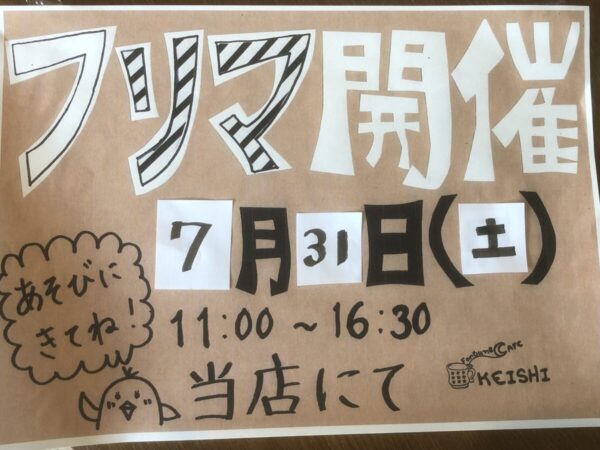 フリマ開催
7月31日(土)
あそびに
きてね!
11:00～16:30
当店にて
Fortune Cafe
KEISHI